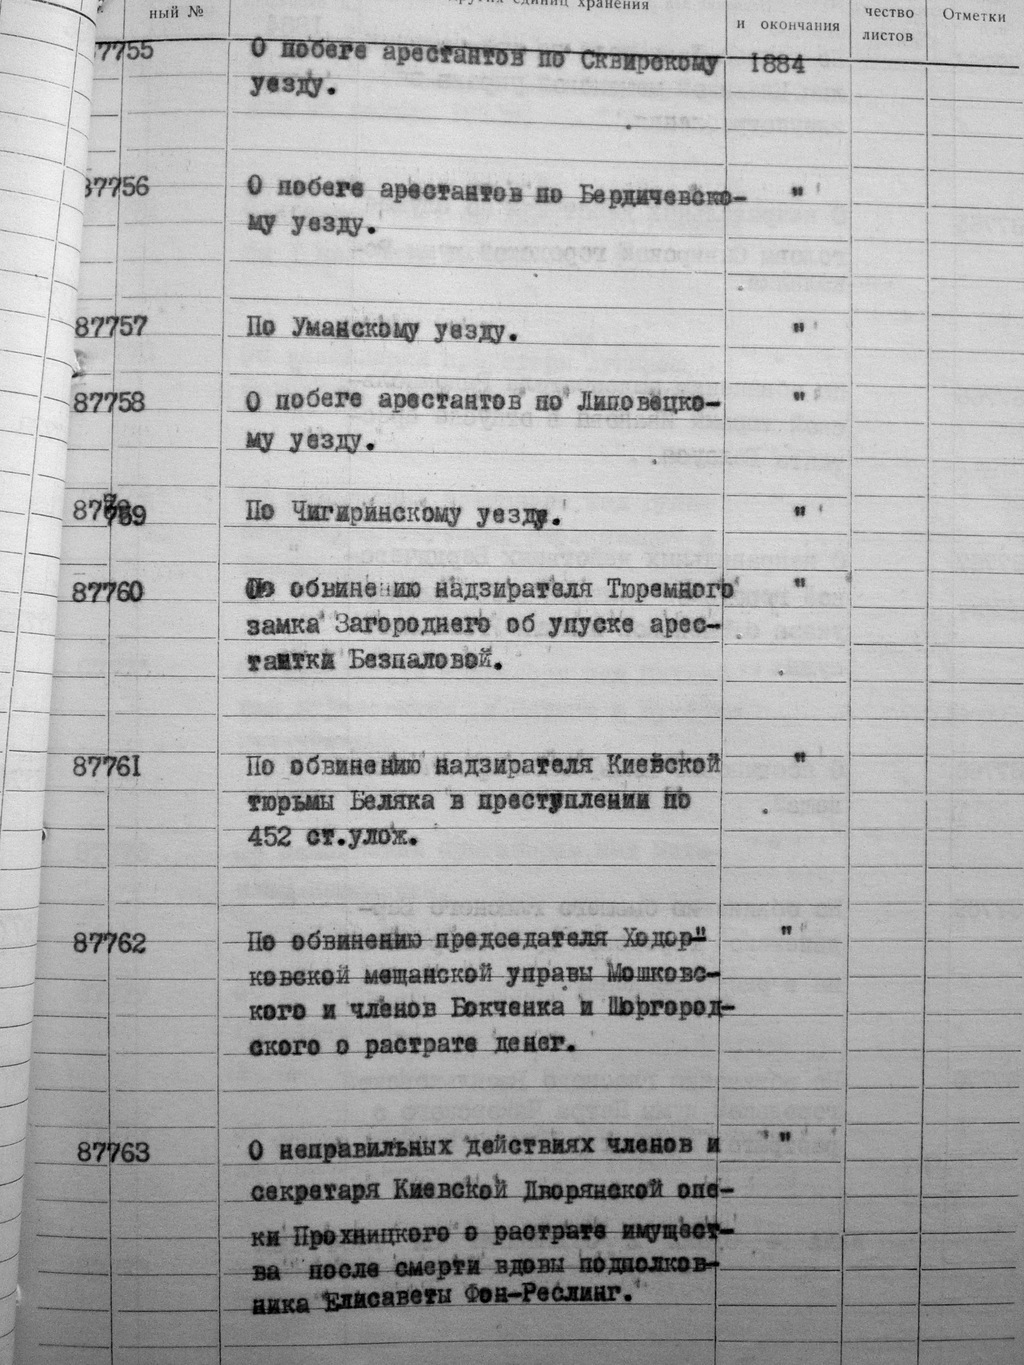 ный № других единиц хранения и окончания чество листов Отметки
87755 О побеге арестантов по Сквирскому 1884
уезду.
87756 О побеге арестантов по Бердичевско- "
му уезду.
87757 По Уманскому уезду. "
87758 О побеге арестантов по Липовецко- "
му уезду.
87759 По Чигиринскому уезду. "
87760 По обвинению надзирателя Тюремного "
замка Загороднего об упуске арес-
тантки Безпаловой.
87761 По обвинению надзирателя Киевской "
тюрьмы Беляка в преступлении по
452 ст.улож.
87762 По обвинению председателя Ходор" "
ковской мещанской управы Мошковс-
кого и членов Бокченка и Шоргород-
ского о растрате денег.
87763 О неправильных действиях членов и "
секретаря Киевской Дворянской опе-
ки Прохницкого о растрате имущест-
ва после смерти вдовы подполков-
ника Елисаветы Фон-Реслинг.